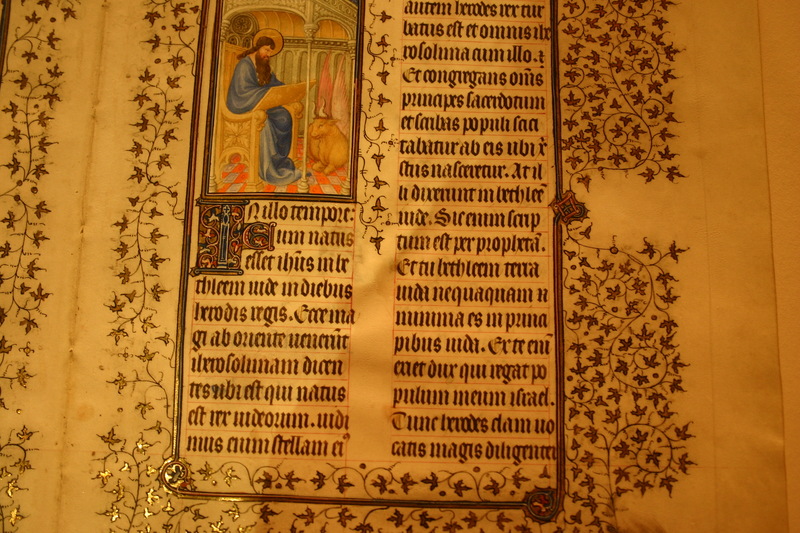 In illo tempore:
Cum natus
esset ih̄us in be
thleem iude in diebus
herodis regis. Ecce ma
gi ab oriente venerūt
iherosolimam dicen
tes ubi est qui natus
est rex iudeorum. vidi
mus enim stellam ei⁹
autem herodes rex tur
batus est et omnis ihe
rosolima cum illo. ⁊
Et congregans om̄s
principes sacerdotum
et scribas populi scisci
tabatur ab eis ubi xp̄
stus nasceretur. At il
li dixerunt in bethleē
iude. Sic enim scrip
tum est per prophetā.
Et tu bethleem terra
iuda nequaquam
minima es in princi
pibus iuda. Ex te enī
exiet dux qui regat po
pulum meum israel.
Tunc herodes clam vo
catis magis diligenter